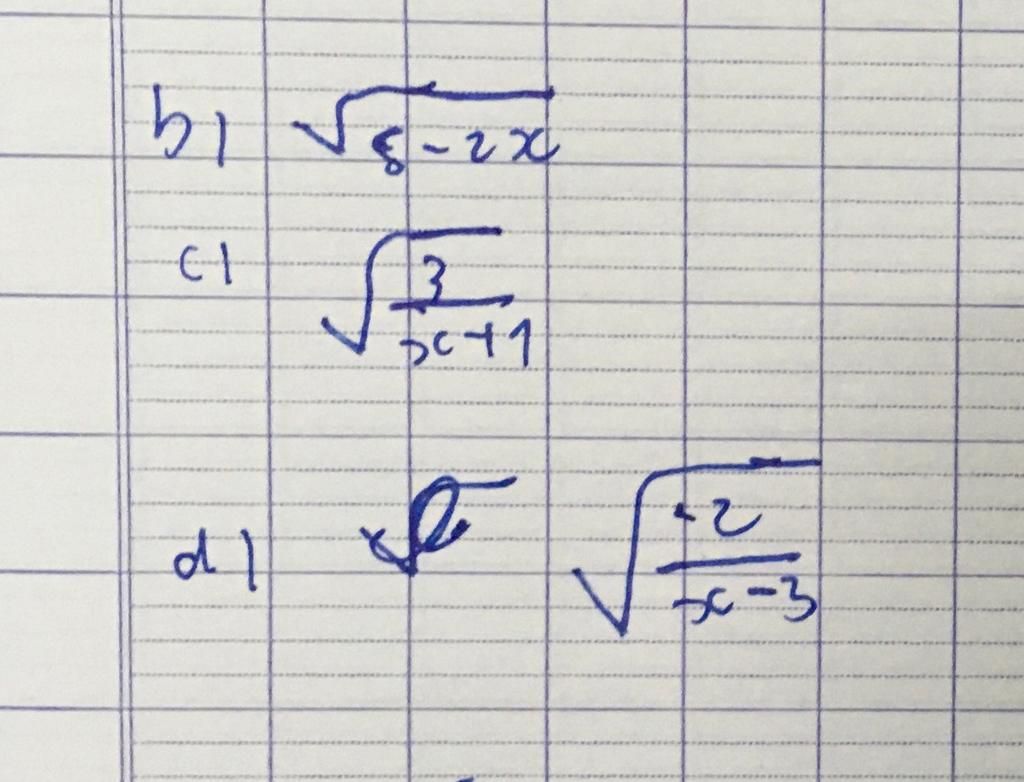 b) √(5-2x)
c) √(3/(x+1))
d) √(-2/(x-3))